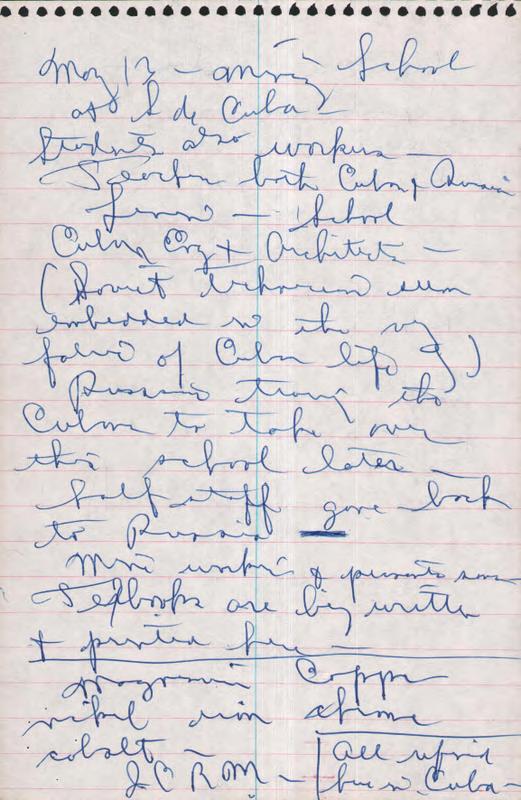 May 13 – Mining School
at S de Cuba –
Students also workers –
Teachers both Cuban + Russian
Lenin — School
Cuban Eng + Architects –
(Soviet technicians seem
embedded in the very
fabric of Cuban life)
Russians training the
Cubans to take over
this school later –
half staff gone back
to Russia
Mine workers & peasants sons
Textbooks are being written
+ printed here —
Magnesium Copper
nikel iron chrome
cobalt –
J C R M – | All refined
here in Cuba –